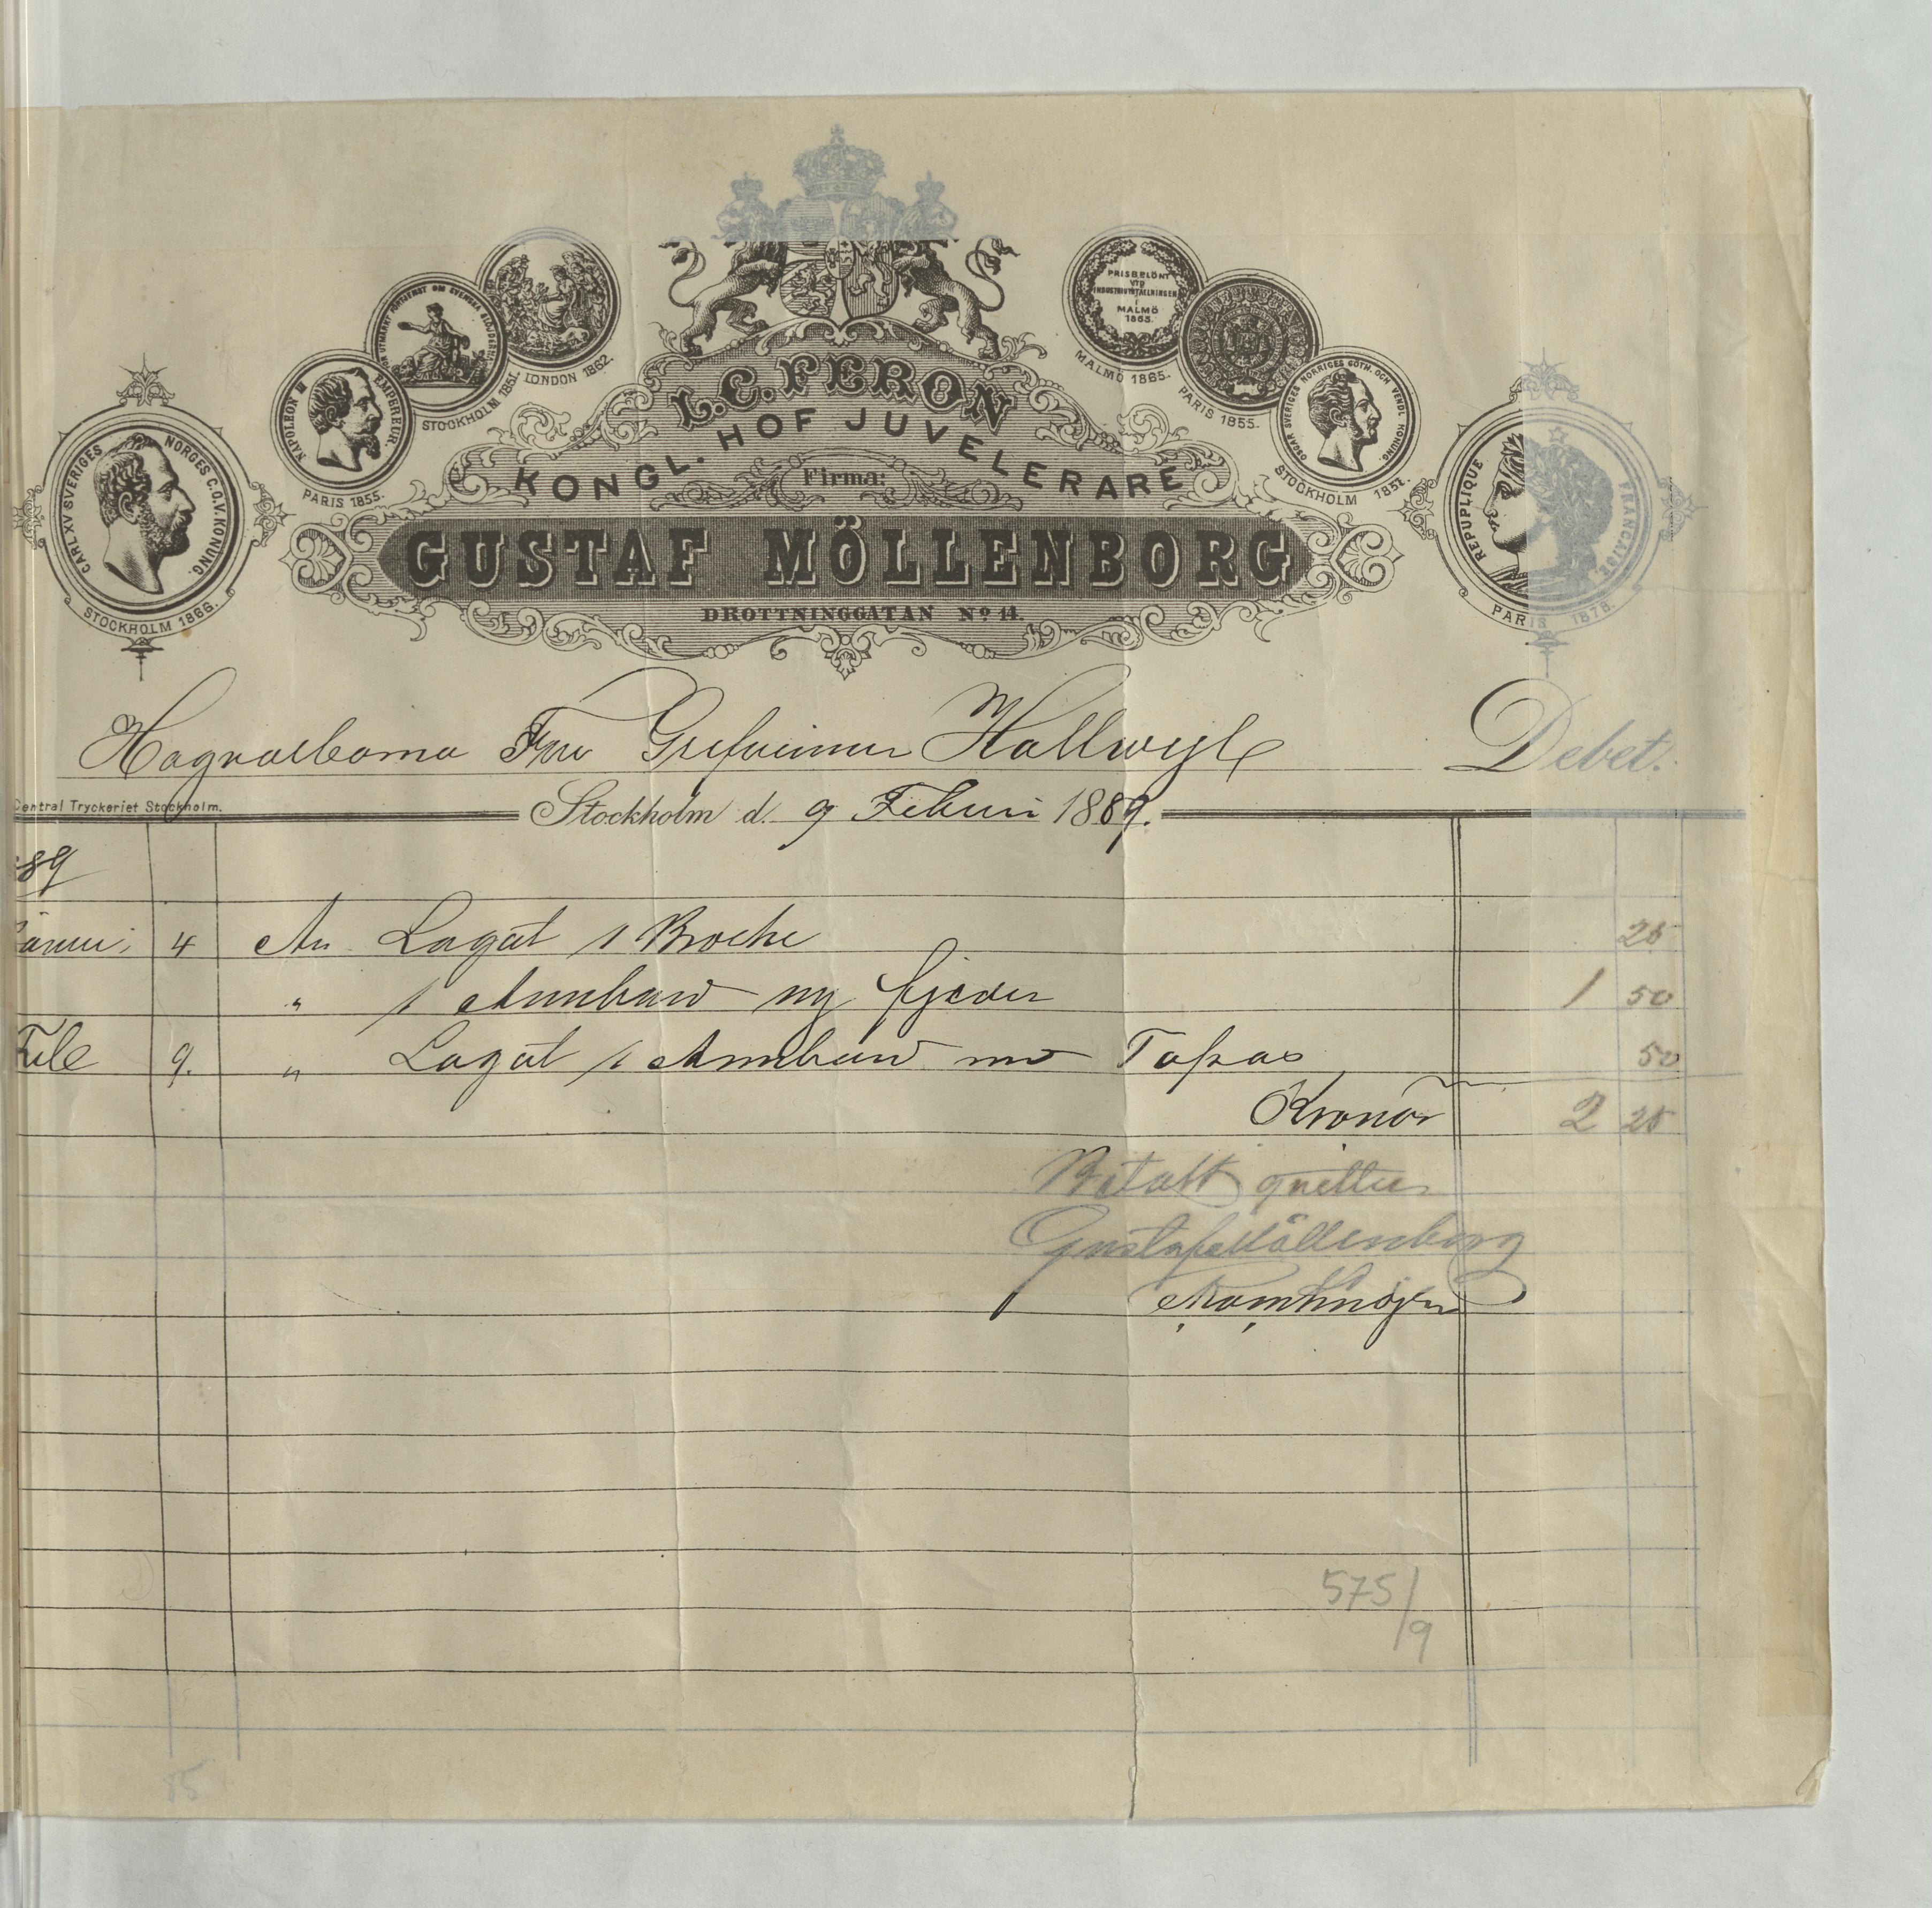 CARL XV SVERIGES NORGES G.O.V. KONUNG.
STOCKHOLM 1866.
NAPOLEON III EMPEREUR.
PARIS 1855.
STOCKHOLM 1851.
LONDON 1862.
L. C. FERON
KONGL. HOF JUVELERARE
Firma:
GUSTAF MÖLLENBORG
DROTTNINGGATAN No 14.
PRISBELÖNT
VID
INDUSTRIUTSTÄLLNINGEN
I
MALMÖ
1865.
MALMÖ 1865.
PARIS 1855.
OSCAR SVERIGES NORRIGES GÖTH. OCH VENDL. KONUNG.
STOCKHOLM 1851.
REPUPLIQUE FRANCAISE
PARIS 1878.
Högvälborna Fru Grefvinnan Hallwyl Debet.
Central Tryckeriet Stockholm.
Stockholm d. 9 Februari 1889.
89
4 An Lagat 1 Broche 25
" 1 Armband ny fjeder 1 50
Feb 9. " Lagat 1 Armband med Topas 50
Kronor 2 25
Betalt qvitteras
Gustaf Möllenborg
575/9